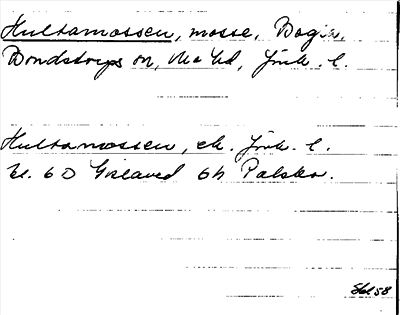 Hultamossen, mosse, Bogla,
Bondstorps sn, Mo hd, Jönk. l.
Hultamossen, ek. Jönk. l.
bl. 6 D Gislaved 6 h Palsbo.
Skl 58